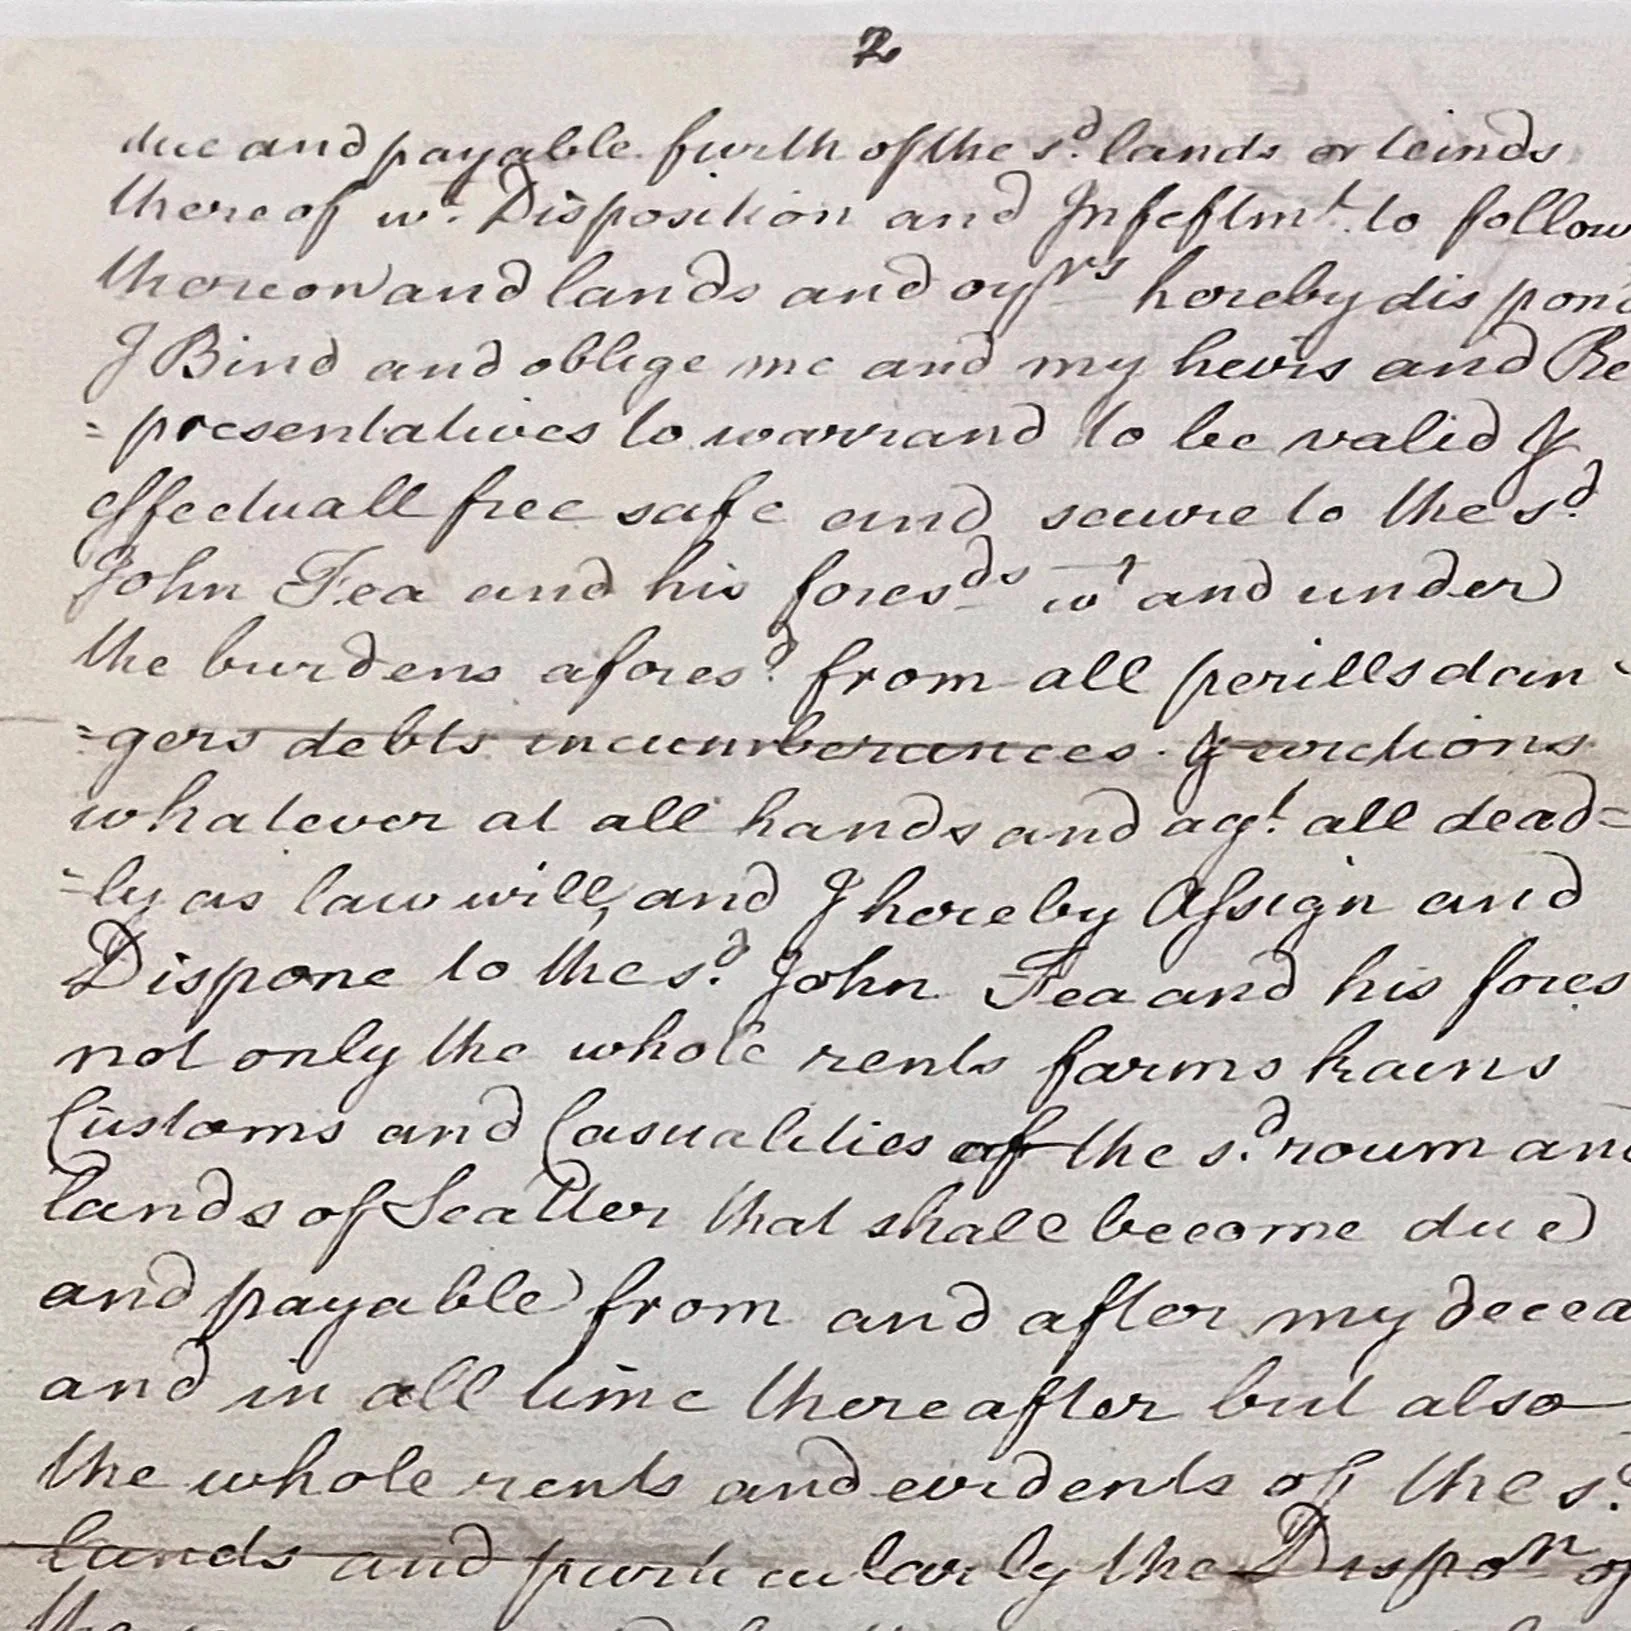 2
due and payable furth of the sd. lands or teinds
thereof wt. Disposition and Infeftmt. to follow
thereon and lands and oyrs hereby dispon'd
I Bind and oblige me and my heirs and Re
=presentatives to warrand to be valid &
effectuall free safe and secure to the sd.
John Fea and his foresds wt and under
the burdens aforesd. from all perills dan
=gers debts incumberances & evictions
whatever at all hands and agt. all dead=
=ly as law will, and I hereby Assign and
Dispone to the sd. John Fea and his fores
not only the whole rents farms kains
Customs and Casualities of the sd. roum and
lands of Scatter that shall become due
and payable from and after my decea
and in all time thereafter but also
the whole rents and evidents of the sd.
lands and particularly the Dispon of